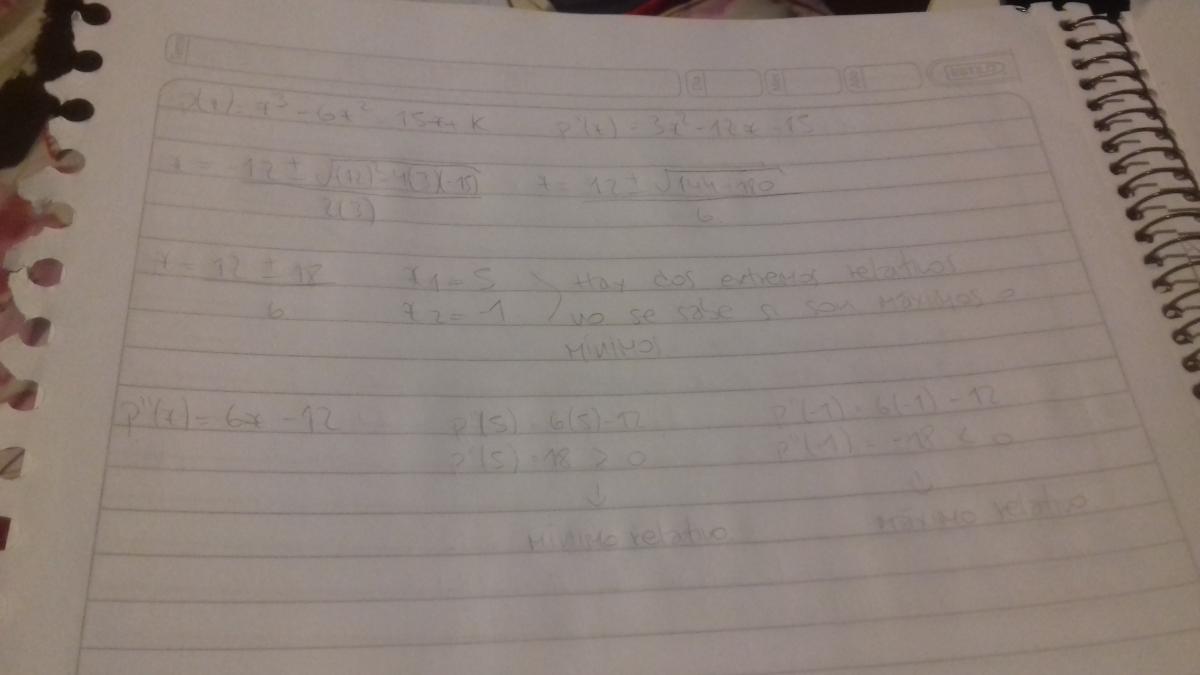 p(x) = x³ - 6x² - 15x + K    p'(x) = 3x² - 12x - 15
x = 12 ± √(12)² - 4(3)(-15) / 2(3)    x = 12 ± √144 + 180 / 6
x = 12 ± 18 / 6    x1 = 5    Hay dos extremos relativos
x2 = -1    no se sabe si son máximos o
mínimos
p''(x) = 6x - 12    p''(5) = 6(5) - 12    p''(-1) = 6(-1) - 12
p''(5) = 18 > 0    p''(-1) = -18 < 0
↓    ↓
mínimo relativo    máximo relativo